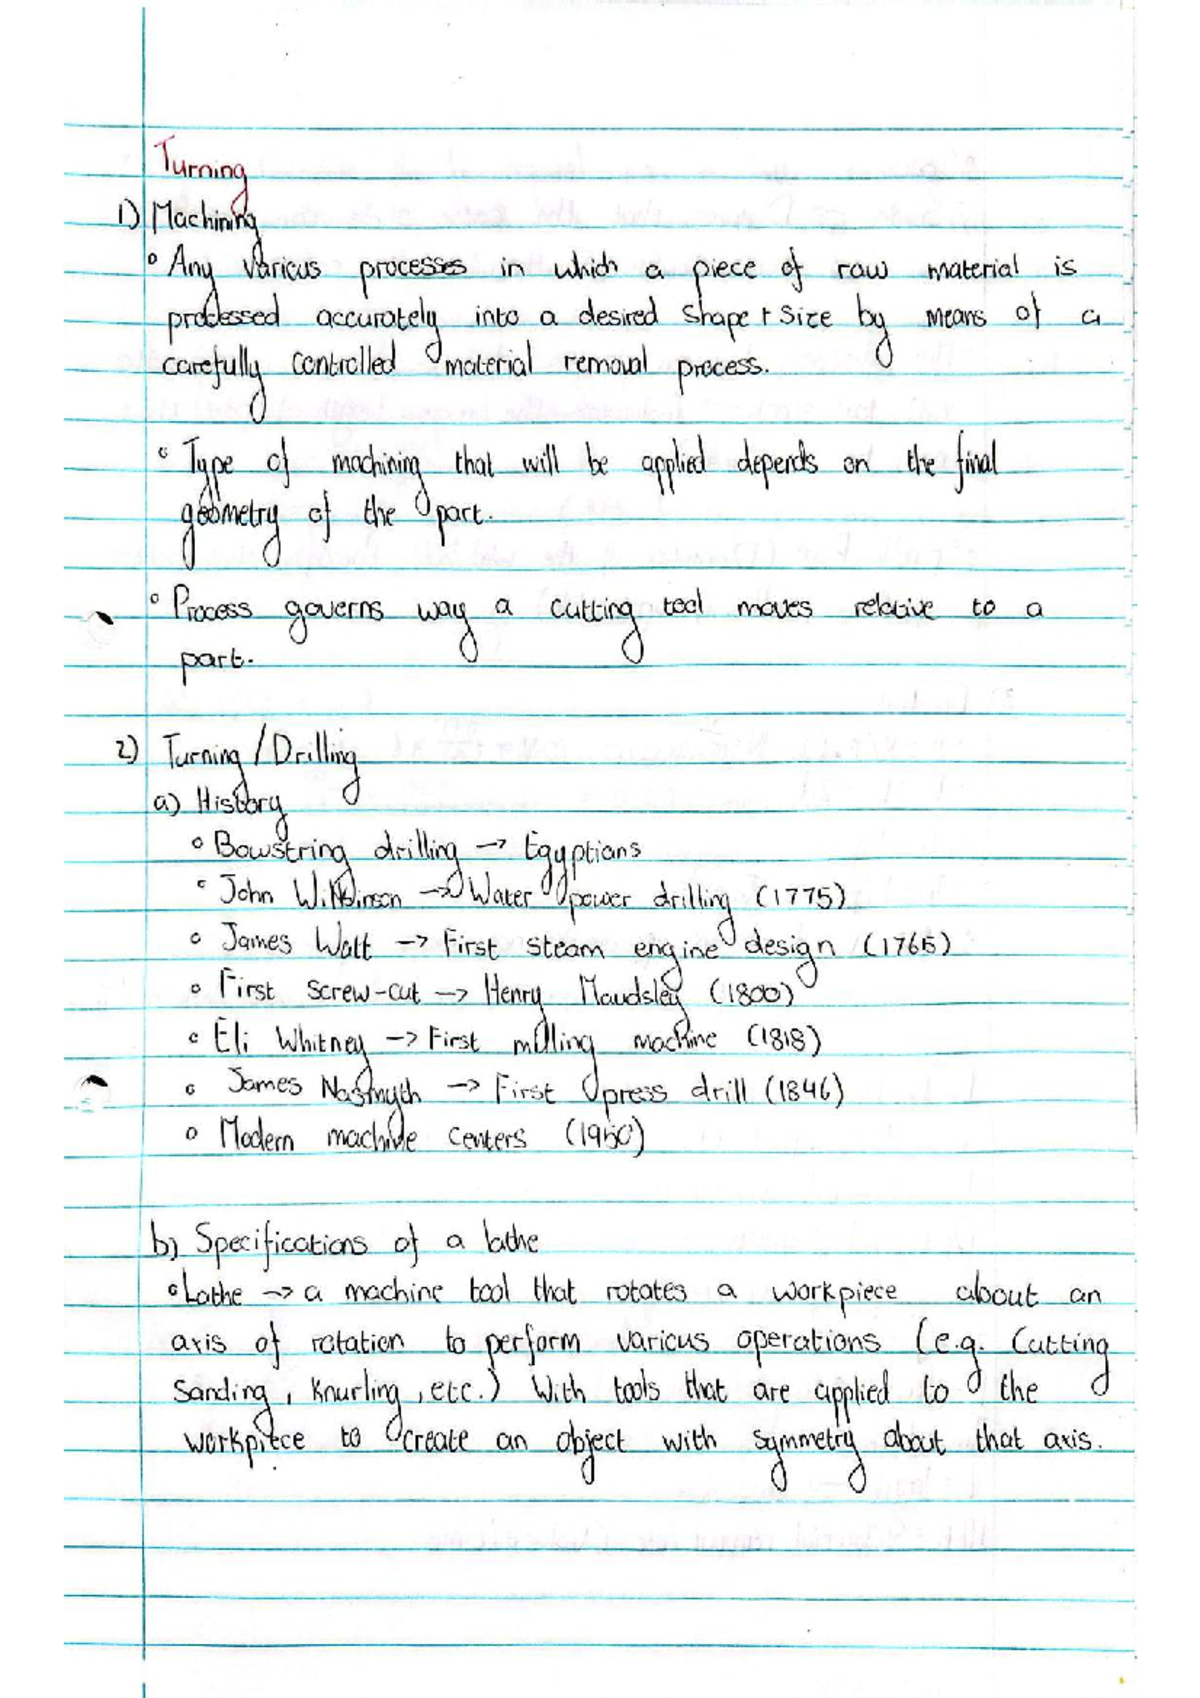 Turning
1) Machining
° Any various processes in which a piece of raw material is
processed accurately into a desired shape + size by means of a
carefully controlled material removal process.
° Type of machining that will be applied depends on the final
geometry of the part.
° Process governs way a cutting tool moves relative to a
part.
2) Turning / Drilling
a) History
° Bowstring drilling → Egyptians
° John Wilkinson → Water power drilling (1775)
° James Watt → First steam engine design (1765)
° First screw-cut → Henry Maudsley (1800)
° Eli Whitney → First milling machine (1818)
° James Nasmyth → First press drill (1846)
° Modern machine centers
b) Specifications of a lathe
° Lathe → a machine tool that rotates a workpiece about an
axis of rotation to perform various operations (e.g. Cutting
Sanding, Knurling, etc.) With tools that are applied to the
workpiece to create an object with symmetry about that axis.